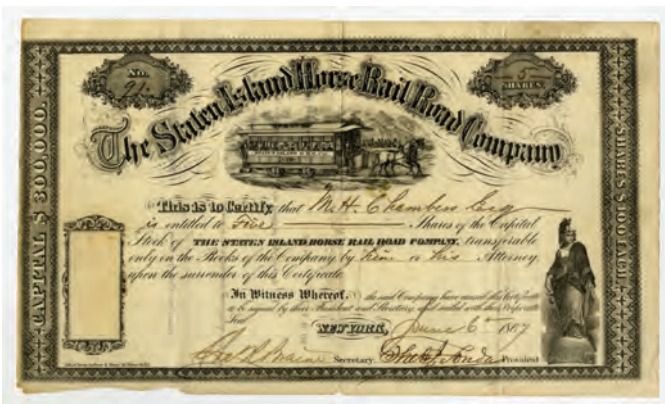 No.
92.
5
SHARES.
The Staten Island Horse Rail Road Company
CAPITAL $ 300,000.
SHARES $ 100 EACH.
This is to Certify, that M. H. Chambers Esq
is entitled to Five Shares of the Capital
Stock of THE STATEN ISLAND HORSE RAIL ROAD COMPANY, transferable
only on the Books of the Company by him or his Attorney
upon the surrender of this Certificate
In Witness Whereof, the said Company have caused this Certificate
to be signed by their President and Secretary, and sealed with their Corporate
Seal
NEW YORK, June 6 1867
Secretary. President